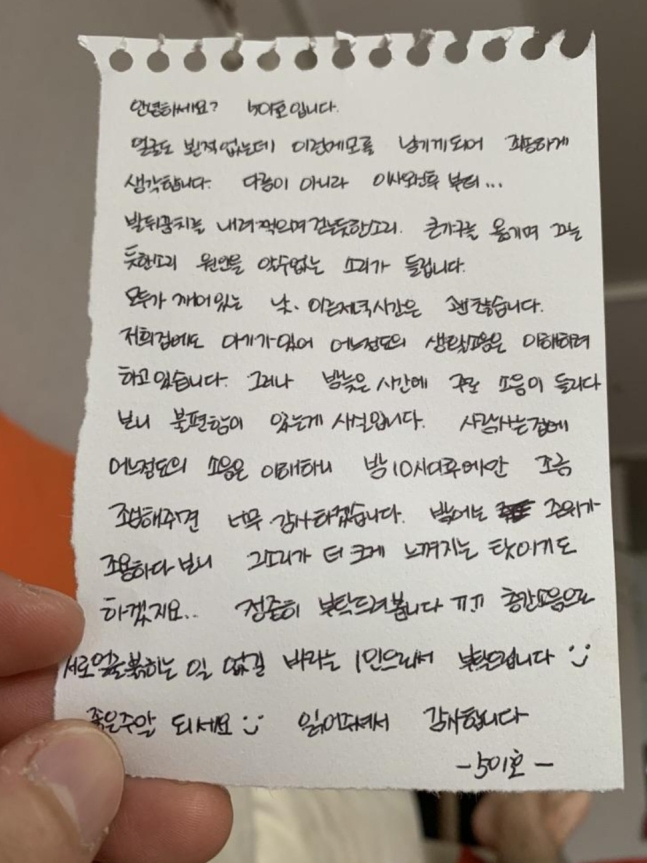 안녕하세요? 501호입니다.
얼굴도 뵌적 없는데 이런메모를 남기게되어 죄송하게
생각합니다. 다름이 아니라 이사오신후 부터...
발뒤꿈치를 내려찍으며 걷는듯한소리. 큰가구를 옮기며 끄는
듯한소리 원인을 알수없는 소리가 들립니다.
모두가 깨어있는 낮. 이른저녁시간은 괜찮습니다.
저희집에도 아기가 있어 어느정도의 생활소음은 이해하려
하고있습니다. 그러나 밤늦은 시간에 주로 소음이 들리다
보니 불편함이 있는게 사실입니다. 사람사는집에
어느정도의 소음은 이해하니 밤10시이후에만 조금
조심해주면 너무 감사하겠습니다. 밤에는 주위가
조용하다 보니 그소리가 더 크게 느껴지는 탓이기도
하겠지요.. 정중히 부탁드려봅니다 ㅠㅠ 층간소음으로
서로얼굴붉히는 일 없길 바라는 1인으로서 부탁드립니다 :)
좋은주말 되세요 :) 읽어주셔서 감사합니다
- 501호 -